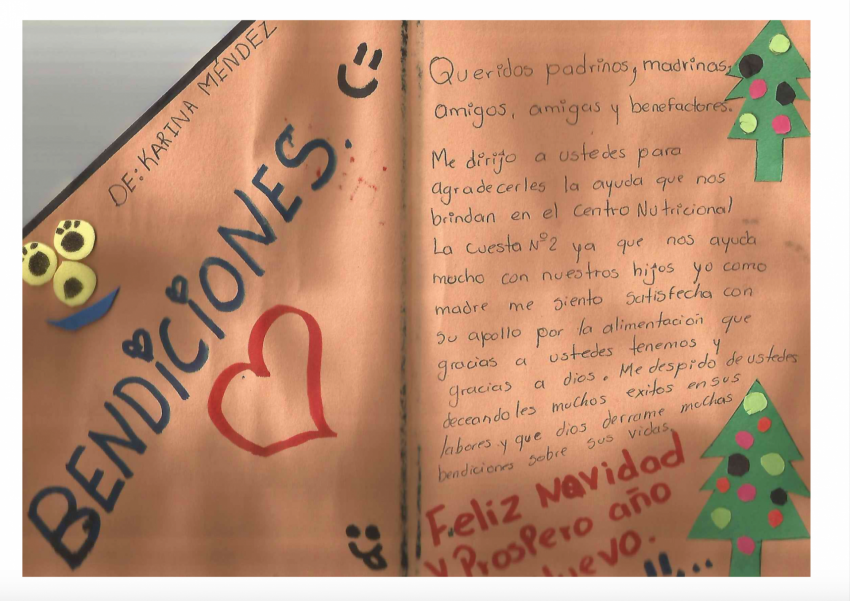 DE: KARINA MÉNDEZ
BENDICIONES.
Queridos padrinos, madrinas,
amigos, amigas y benefactores.
Me dirijo a ustedes para
agradecerles la ayuda que nos
brindan en el Centro Nutricional
La cuesta Nº2 ya que nos ayuda
mucho con nuestros hijos yo como
madre me siento satisfecha con
su apollo por la alimentación que
gracias a ustedes tenemos y
gracias a dios. Me despido de ustedes
deceandoles muchos exitos en sus
labores y que dios derrame muchas
bendiciones sobre sus vidas.
Feliz Navidad
y Prospero año
uevo.